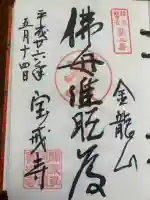 金龍山
佛母准胝尊
宝戒寺
平成廿六年
五月十四日